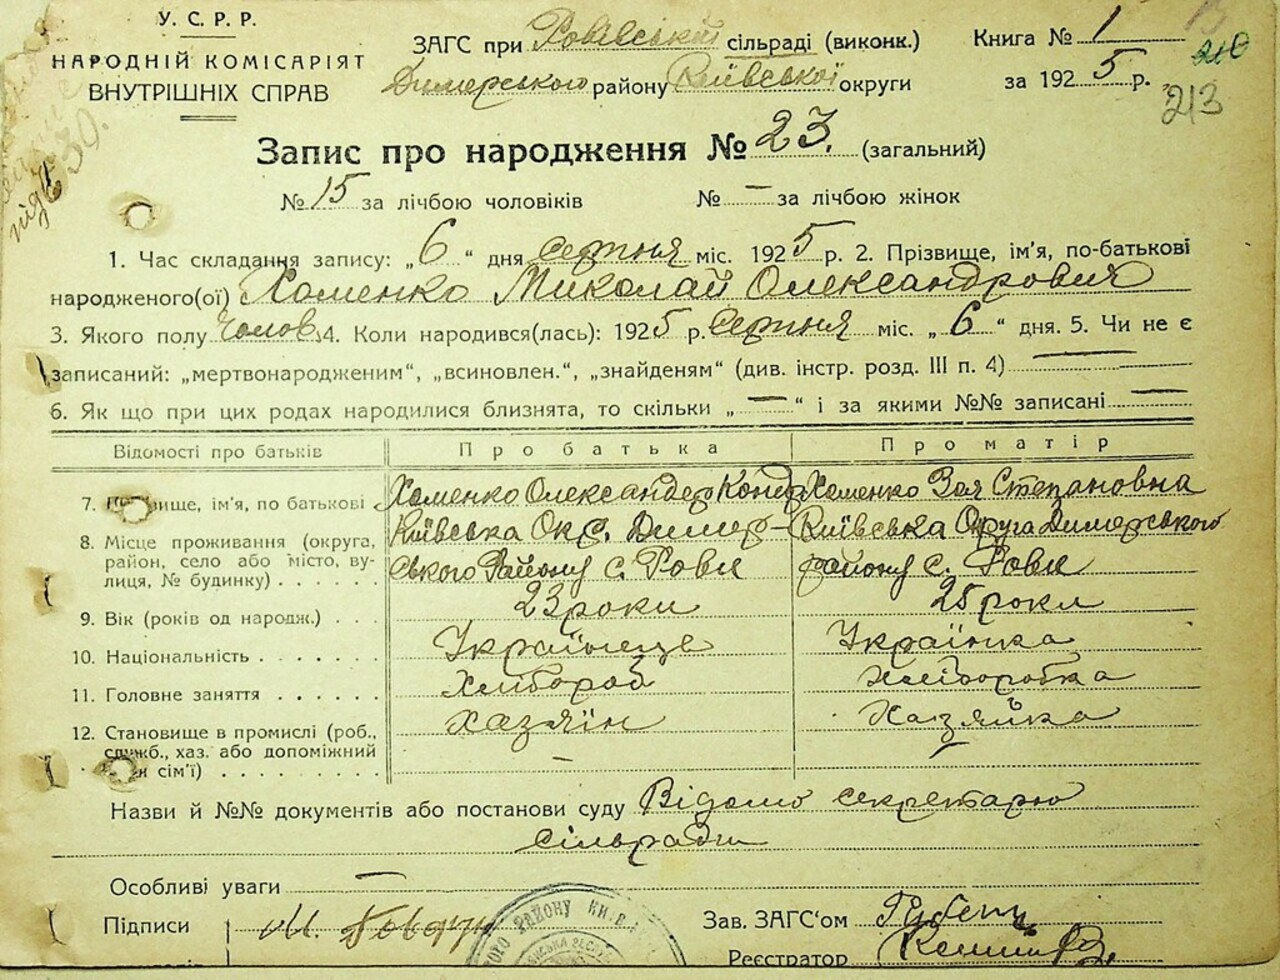 У. С. Р. Р.
НАРОДНІЙ КОМІСАРІЯТ
ВНУТРІШНІХ СПРАВ
ЗАГС при Ровівській сільраді (виконк.)
Димерського району Київської округи
Книга № 1
за 1925 р.
210
213
Запис про народження № 23. (загальний)
№ 15 за лічбою чоловіків № — за лічбою жінок
1. Час складання запису: „6“ дня серпня міс. 1925 р. 2. Прізвище, ім'я, по-батькові
народженого(ої) Хоменко Миколай Олександрович
3. Якого полу Чолов. 4. Коли народився(лась): 1925 р. серпня міс. „6“ дня. 5. Чи не є
записаний: „мертвонародженим“, „всиновлен.“, „знайденям“ (див. інстр. розд. III п. 4) —
6. Як що при цих родах народилися близнята, то скільки „—“ і за якими №№ записані —
Відомості про батьків Про батька Про матір
7. вище, ім'я, по батькові Хоменко Олександер Конд Хоменко Зоя Степановна
8. Місце проживання (округа, район, село або місто, вулиця, № будинку) Київська Окр. Димерського Району с. Рови Київська Округа Димерського району с. Рови
9. Вік (років од народж.) 23 роки 25 роки
10. Національність Українець Українка
11. Головне заняття Хлібороб Хліборобка
12. Становище в промислі (роб., служб., хаз. або допоміжний сім'ї) хазяїн Хазяйка
Назви й №№ документів або постанови суду Відомо секретарю
сільради
Особливі уваги —
Підписи
Зав. ЗАГС‘ом
Реєстратор
ОГО РАЙОНУ КИЇВ